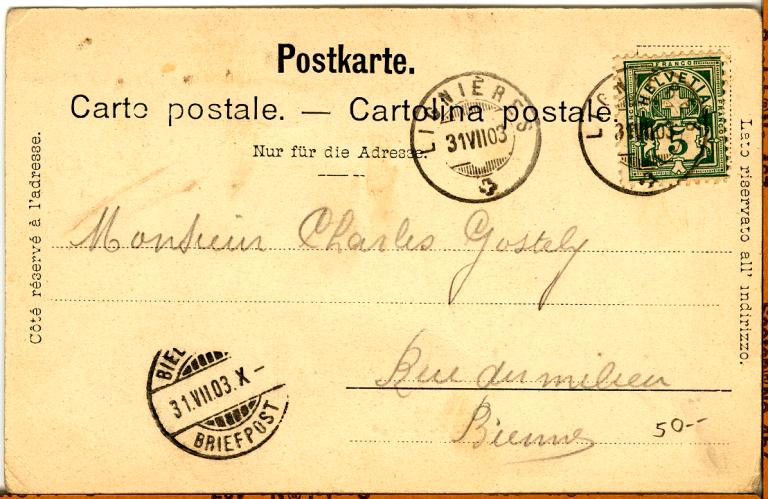 Postkarte.
Carte postale. — Cartolina postale.
Nur für die Adresse.
Côté réservé à l'adresse.
Lato riservato all' indirizzo.
LIGNIÈRES
31 VII 03
LIGN
31 VII 03
FRANCO
HELVETIA
FRANCO
FRANCO
5
Monsieur Charles Gostely
Rue du milieu
Bienne
50.-
BIEL
31.VII.03.X-
BRIEFPOST